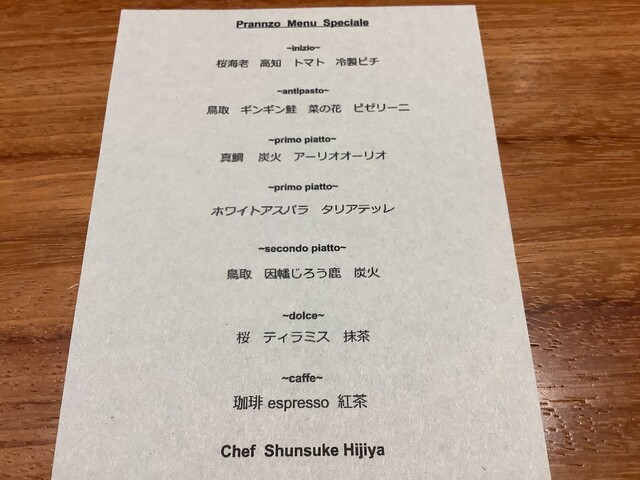 Prannzo Menu Speciale
~inizio~
桜海老 高知 トマト 冷製ピチ
~antipasto~
鳥取 ギンギン鮭 菜の花 ピゼリーニ
~primo piatto~
真鯛 炭火 アーリオオーリオ
~primo piatto~
ホワイトアスパラ タリアテッレ
~secondo piatto~
鳥取 因幡じろう鹿 炭火
~dolce~
桜 ティラミス 抹茶
~caffe~
珈琲 espresso 紅茶
Chef Shunsuke Hijiya